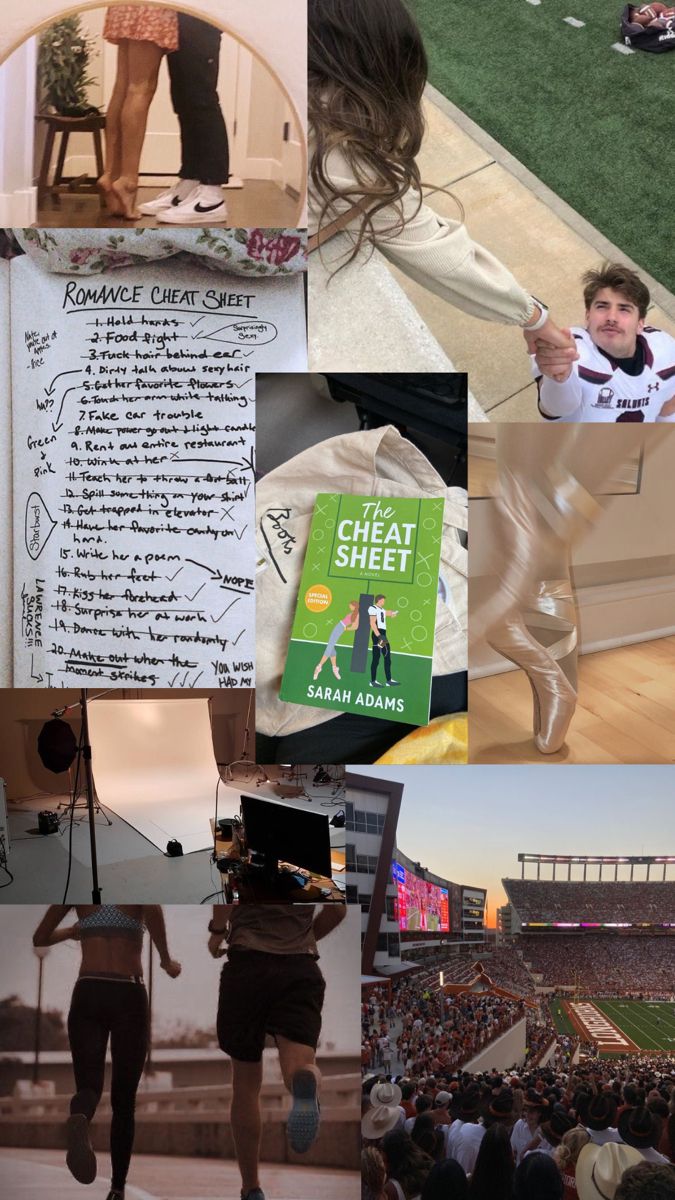 SALUKIS
ROMANCE CHEAT SHEET
1. Hold hands
Surprisingly
Sexy.
2. Food fight
3. Tuck hair behind ear
4. Dirty talk about sexy hair
5. Get her favorite flowers
6. Touch her arm while talking
7. Fake car trouble
8. Make power go out & light candle
9. Rent out entire restaurant
10. Wink at her
11. Teach her to throw a foot ball
12. Spill something on your shirt
13. Get trapped in elevator
14. Have her favorite candy on
hand.
15. Write her a poem
16. Rub her feet
17. Kiss her forehead
18. Surprise her at work
19. Dance with her randomly
20. Make out when the
moment strikes
ha??
Green
&
Pink
Starburst
NOPE
LAWRENCE
SUCKS!!!
YOU WISH
HAD MY
The
CHEAT
SHEET
A NOVEL
SPECIAL
EDITION
SARAH ADAMS